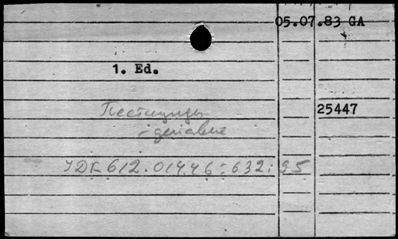 05.07.83 GA
1. Ed.
25447
Пестициды
- действие
УДК 612.014.46:632.95